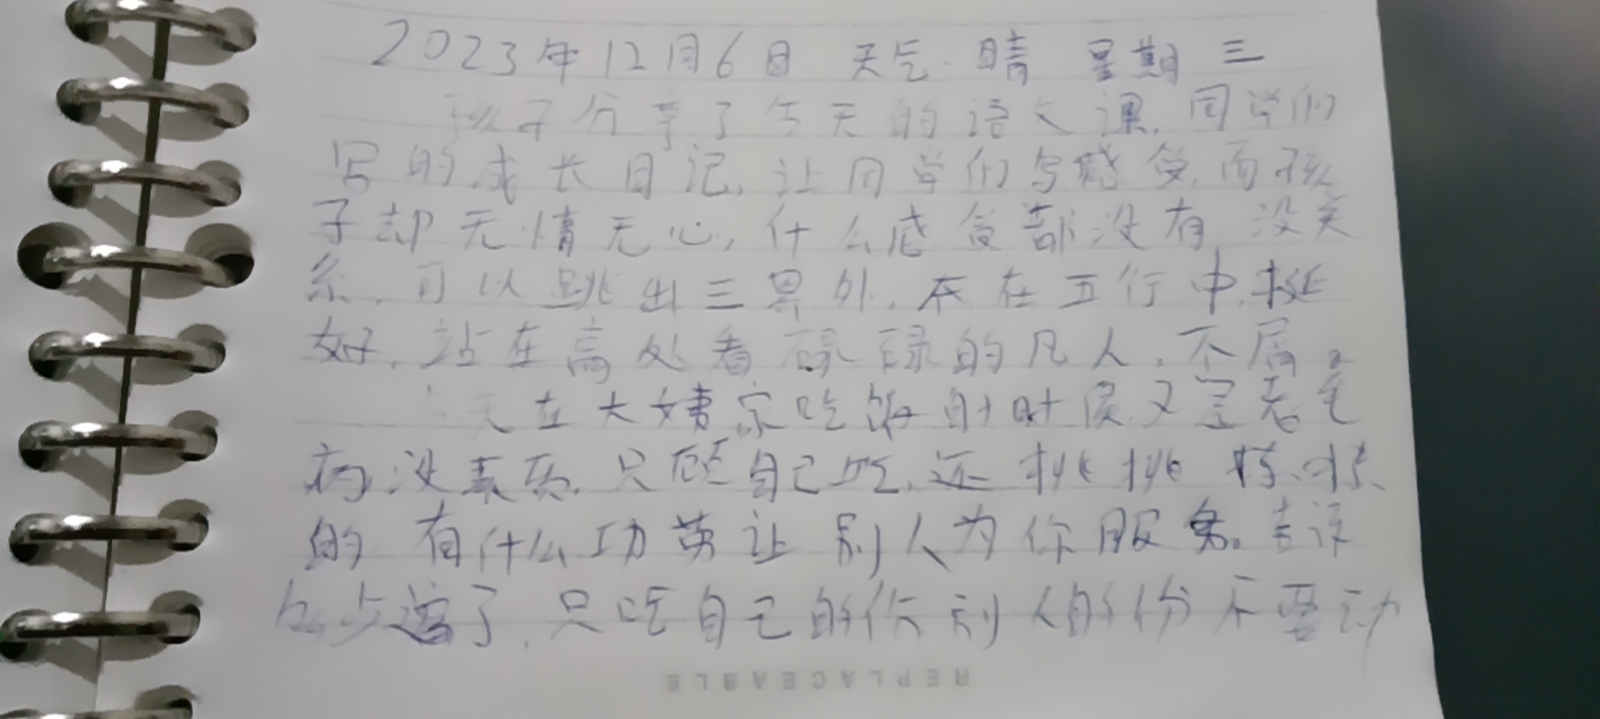 2023年12月6日 天气:晴 星期三
孩子分享了今天的语文课,同学们
写的成长日记,让同学们写感受,而孩
子却无情无心,什么感受都没有,没关
系,可以跳出三界外,不在五行中,挺
好,站在高处看碌碌的凡人,不屑。
天在大姨家吃饭的时候又是老毛
病没素质,只顾自己吃,还挑挑拣拣
的 有什么功劳让别人为你服务。告诉
了,只吃自己的份别人的份不要动
REPLACEABLE